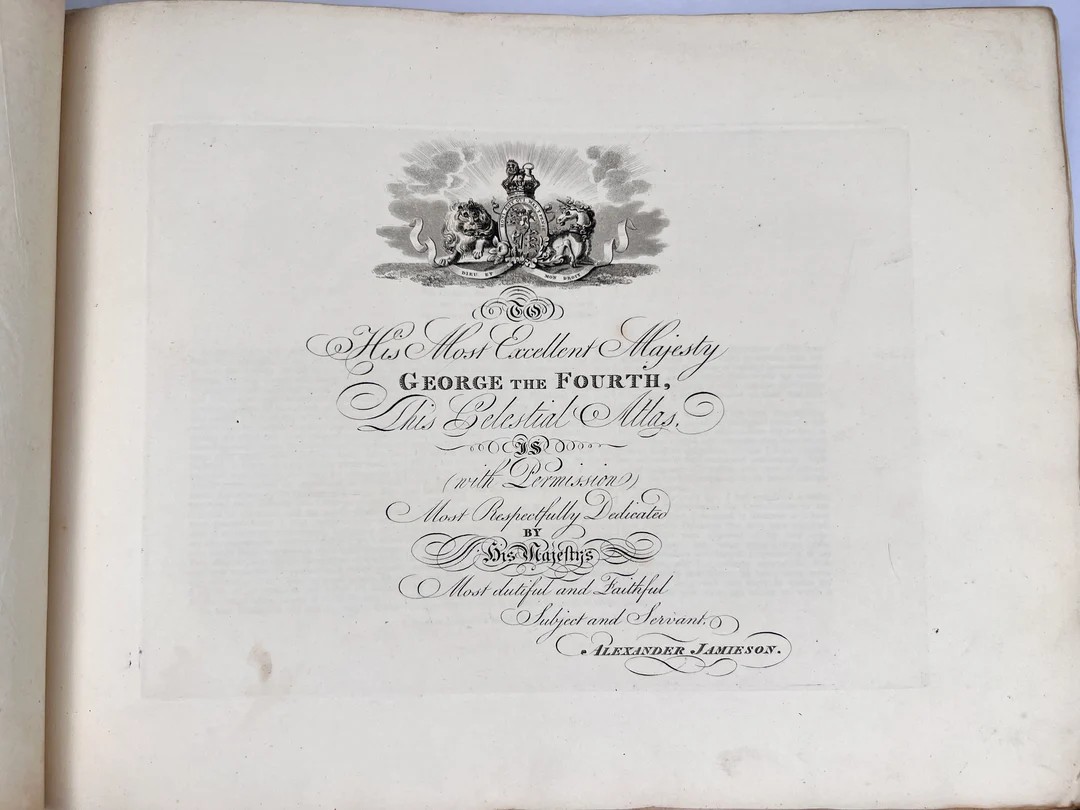 DIEU ET MON DROIT
TO
His Most Excellent Majesty
GEORGE THE FOURTH,
This Celestial Atlas.
IS
(with Permission)
Most Respectfully Dedicated
BY
His Majestys
Most dutiful and Faithful
Subject and Servant.
ALEXANDER JAMIESON.